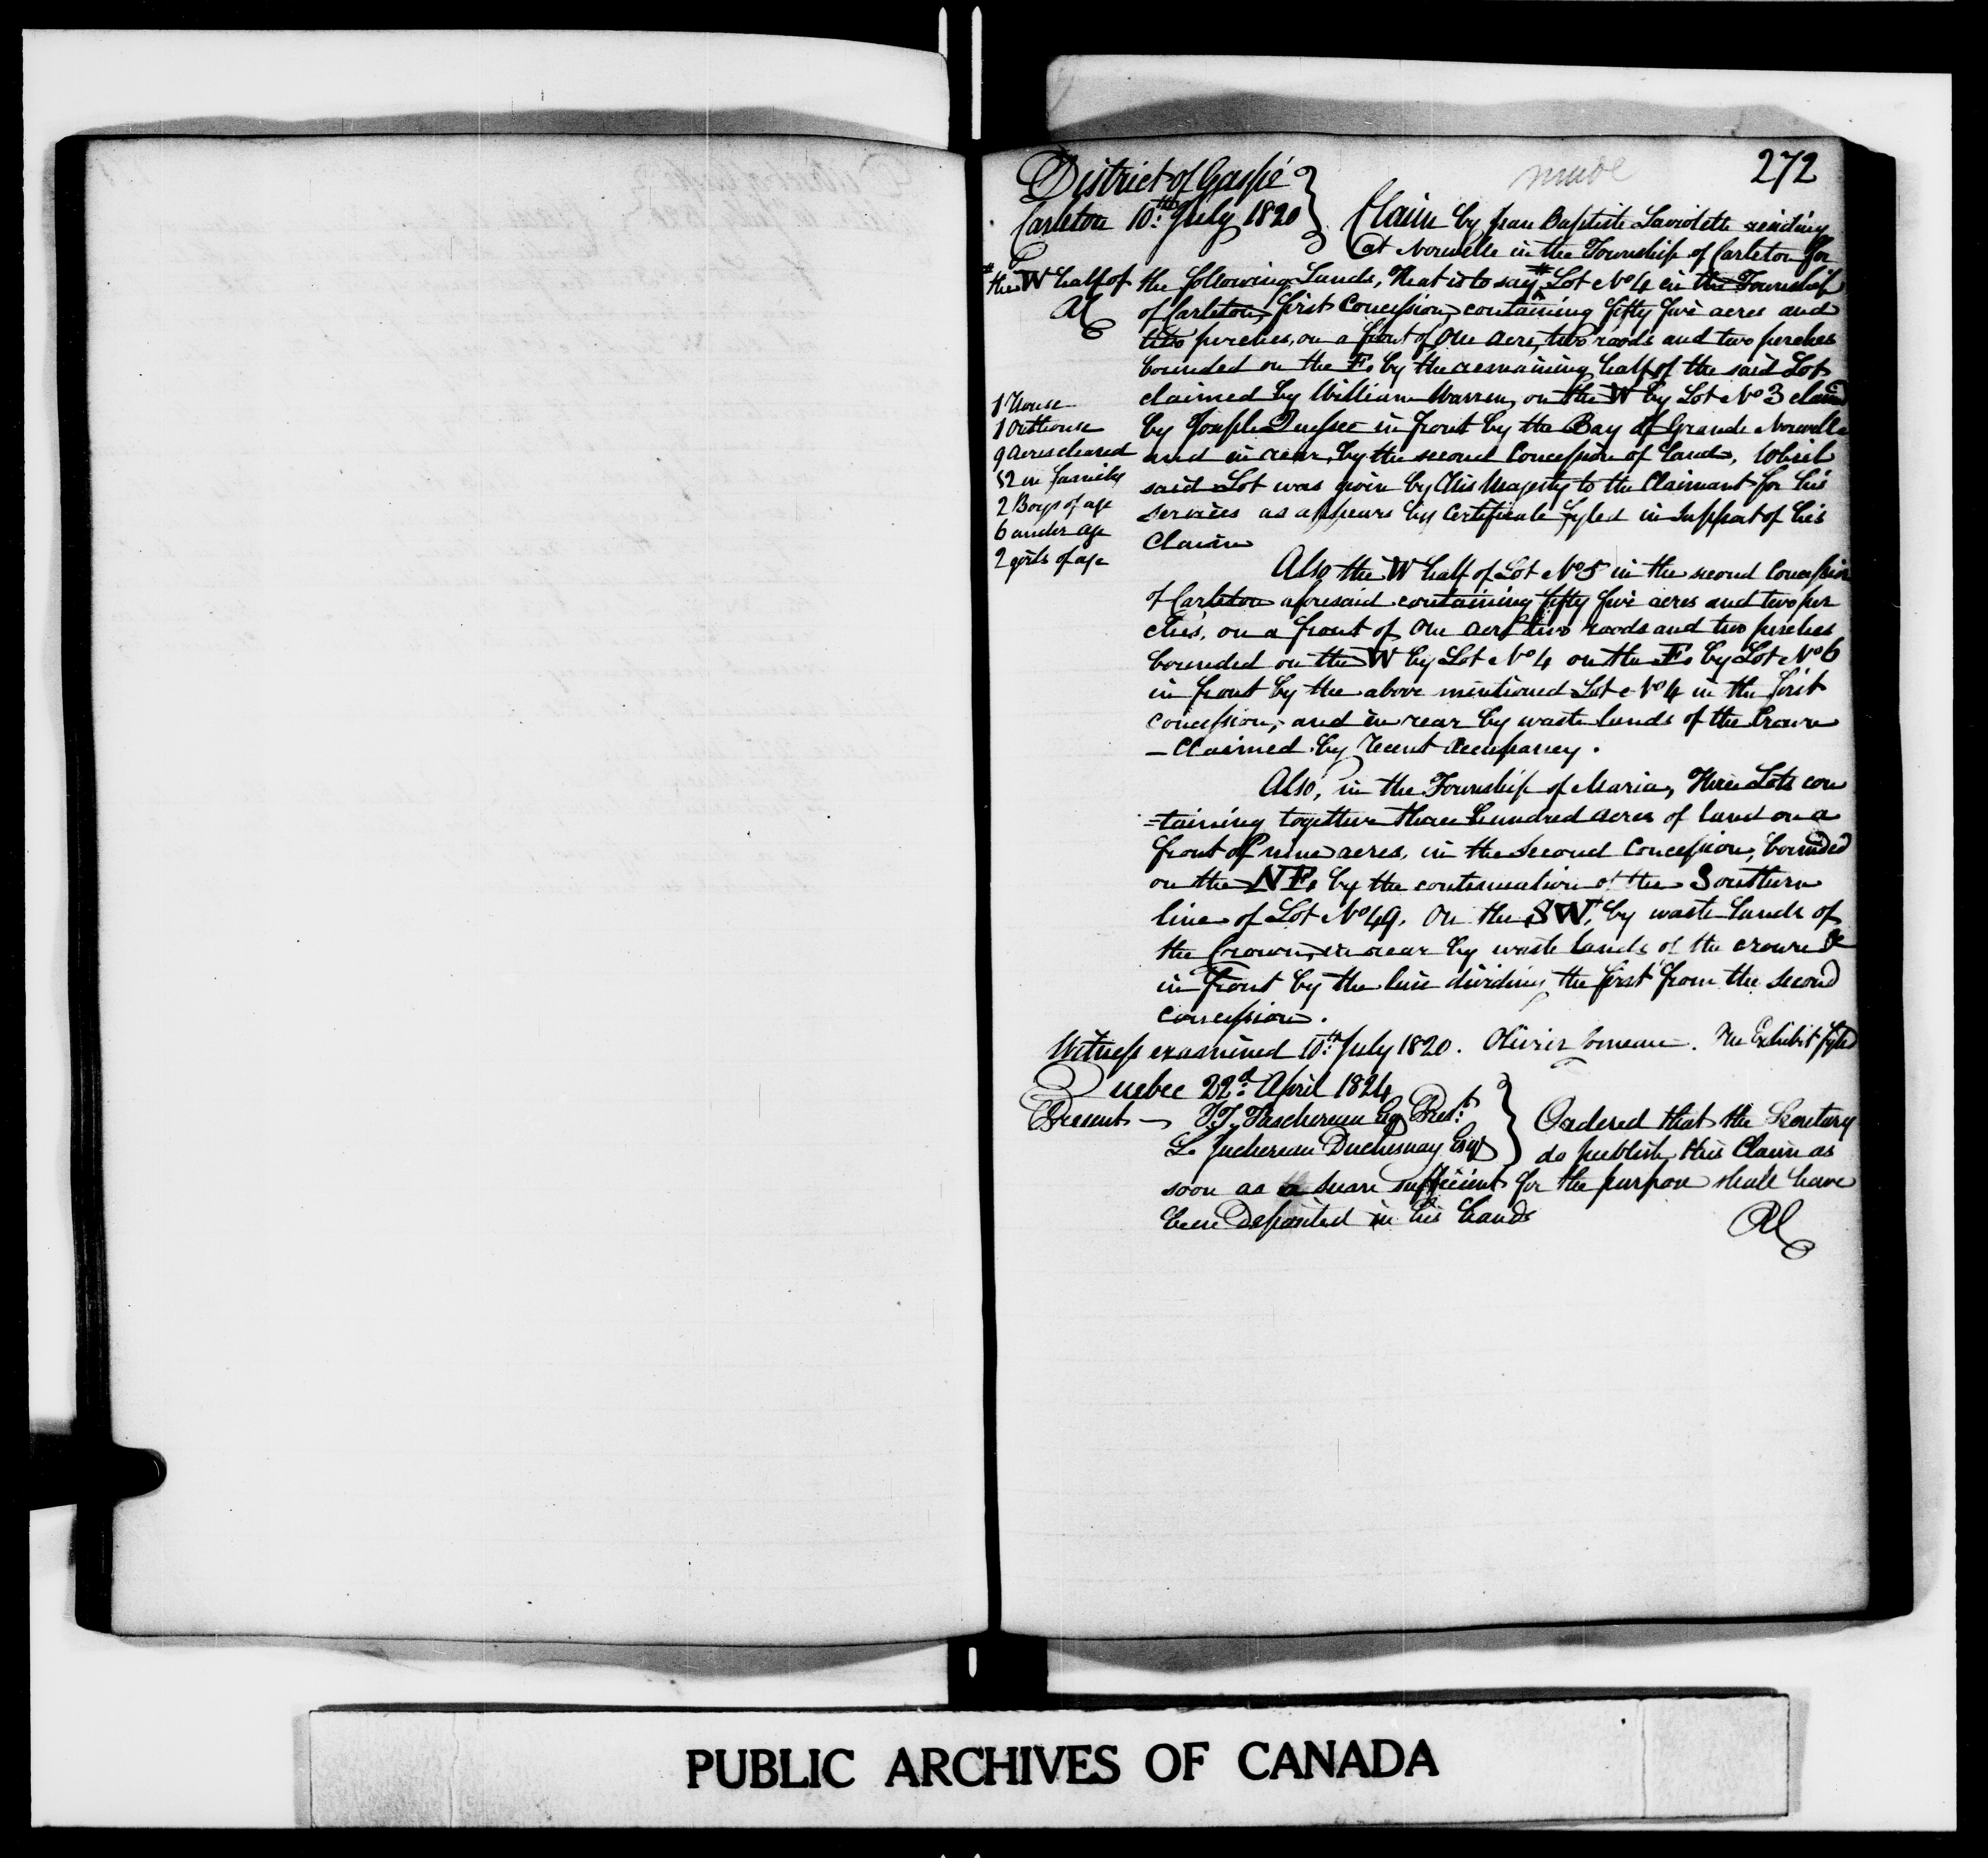 272
made
District of Gaspé
Carleton 10th July 1820
Claim by Jean Baptiste Laviolette residing
at Nouvelle in the Township of Carleton for
# the W half of
the following Lands, That is to say # Lot No 4 in the Township
of Carleton, first Concession, containing fifty five acres and
two perches, on a front of one acre, two roods and two perches
bounded on the E. by the remaining half of the said Lot
claimed by William Warren, on the W by Lot No 3 claimed
by Joseph in front by the Bay of Grande Nouvelle
and in rear, by the second Concession of Lands, Which
said Lot was given by His Majesty to the Claimant for his
services as appears by Certificate fyled in support of his
Claim
1 House
1 Outhouse
9 Acres cleared
12 in family
2 Boys of age
6 under age
2 girls of age
Also the W half of Lot No 5 in the second Concession
of Carleton aforesaid containing fifty five acres and two per
ches, on a front of one acre two roods and two perches
bounded on the W by Lot No 4 on the E. by Lot No 6
in front by the above mentioned Lot No 4 in the first
concession, and in rear by waste lands of the Crown
— Claimed by recent occupancy.
Also, in the Township of Maria, Three Lots con
=taining together three hundred acres of land on a
front of nine acres, in the second Concession, bounded
on the NE. by the continuation of the Southern
line of Lot No 49. On the SW. by waste lands of
the Crown, in rear by waste lands of the crown &
in front by the line dividing the first from the second
concession.
Witness examined 10th July 1820. Olivier Comeau. One Exhibit fyled
Quebec 22d April 1824
Present — J.T. Taschereau Esq Prest
L. Juchereau Duchesnay Esqr
Ordered that the Secretary
do publish this Claim as
soon as a sum sufficient for the purpose shall have
been Deposited in his hands
PUBLIC ARCHIVES OF CANADA